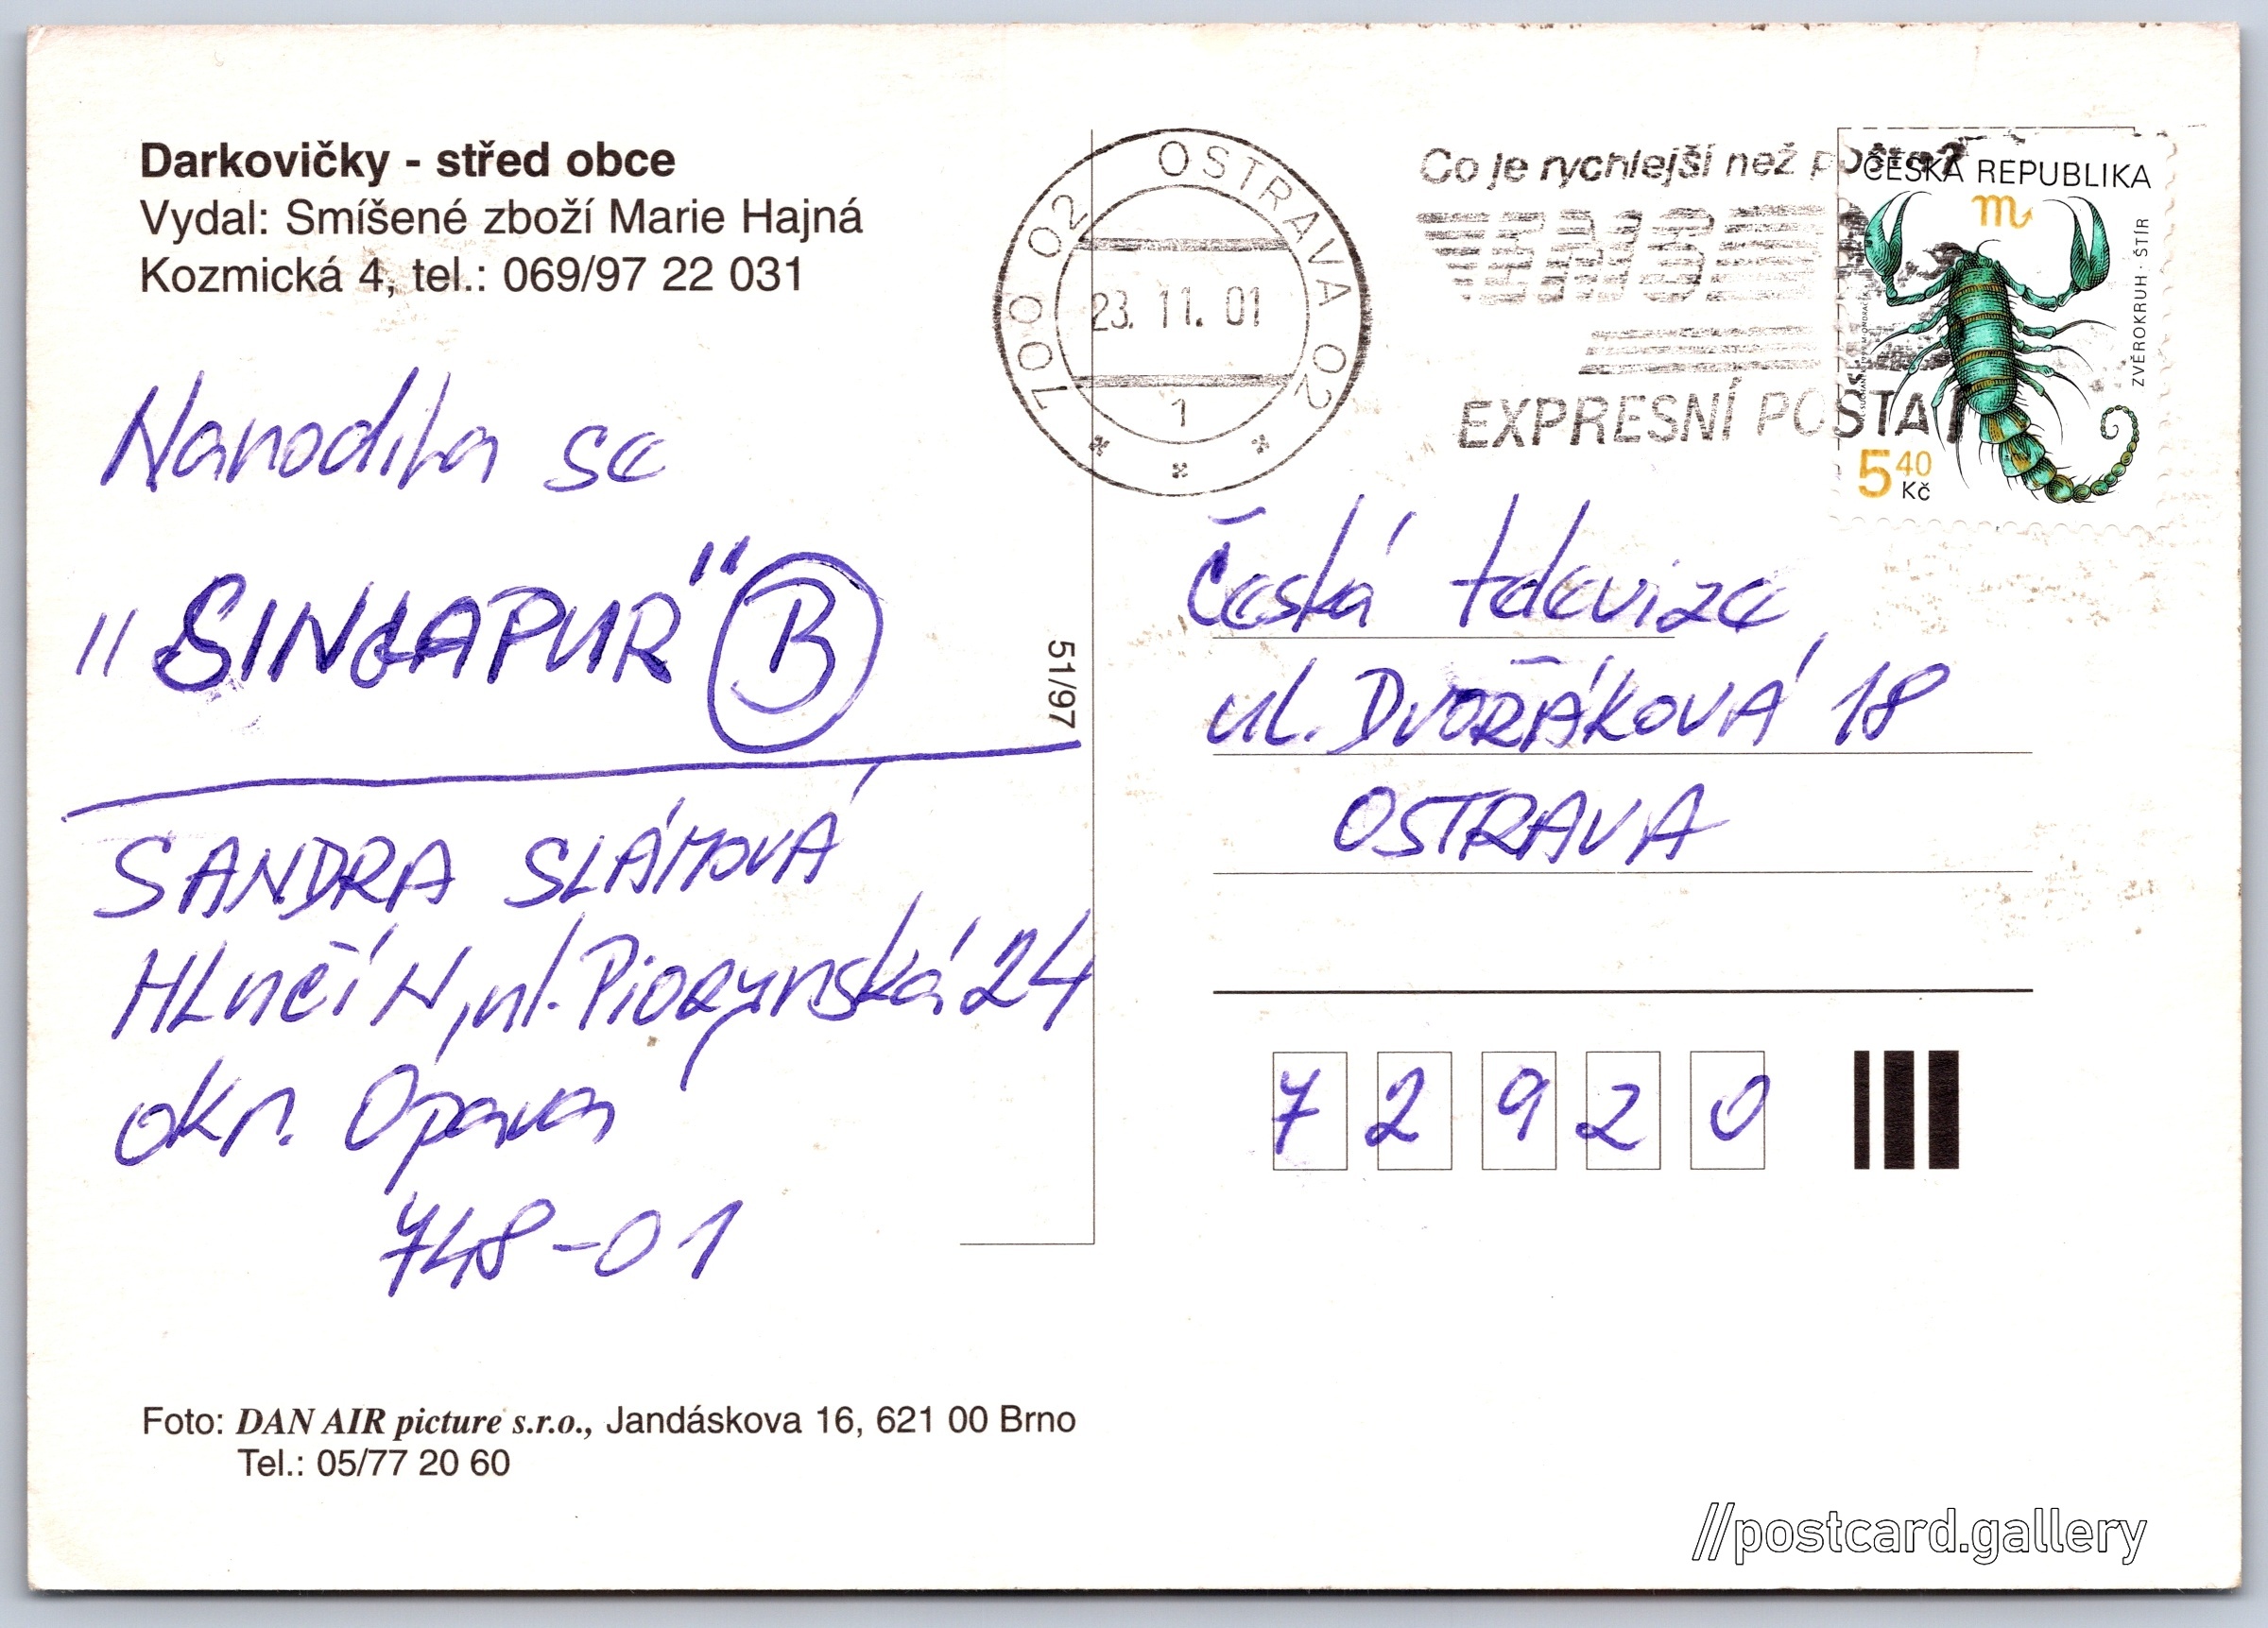 Darkovičky - střed obce
Vydal: Smíšené zboží Marie Hajná
Kozmická 4, tel.: 069/97 22 031
Narodila se
"SINGAPUR" B
SANDRA SLÁMOVÁ
HLučíN, ul. 24
okr. Opava
748-01
Foto: DAN AIR picture s.r.o., Jandáskova 16, 621 00 Brno
Tel.: 05/77 20 60
51/97
OSTRAVA 02
702 00
23. 11. 01
1
Co je rychlejší než pošta?
EMS
EXPRESNÍ POŠTA
ČESKÁ REPUBLIKA
ZVĚROKRUH · ŠTÍR
5 40 Kč
Česká televize,
ul. DVOŘÁKOVÁ 18
OSTRAVA
7 2 9 2 0
//postcard.gallery